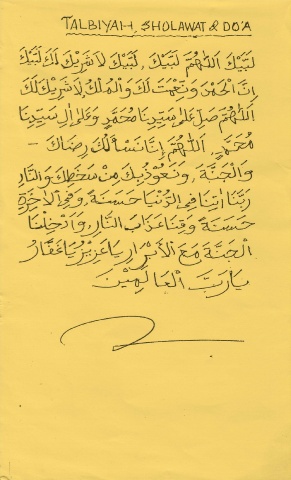 TALBIYAH, SHOLAWAT & DO'A
لَبَّيْكَ اللّٰهُمَّ لَبَّيْكَ، لَبَّيْكَ لَا شَرِيْكَ لَكَ لَبَّيْكَ
اِنَّ الْحَمْدَ وَنِّعْمَتَ لَكَ وَالْمُلْكَ لَا شَرِيْكَ لَكَ
اَللّٰهُمَّ صَلِّ عَلٰى سَيِّدِنَا مُحَمَّدٍ وَعَلٰى اٰلِ سَيِّدِنَا
مُحَمَّدٍ، اَللّٰهُمَّ اِنَّا نَسْأَلُكَ رِضَاكَ –
وَالْجَنَّةَ، وَنَعُوْذُ بِكَ مِنْ سَخَطِكَ وَالنَّارِ
رَبَّنَا اٰتِنَا فِى الدُّنْيَا حَسَنَةً، وَفِى الْاٰخِرَةِ
حَسَنَةً وَقِنَا عَذَابَ النَّارِ، وَاَدْخِلْنَا
الْجَنَّةَ مَعَ الْاَبْرَارِ يَا عَزِيْزُ يَا غَفَّارُ
يَا رَبَّ الْعَالَمِيْنَ